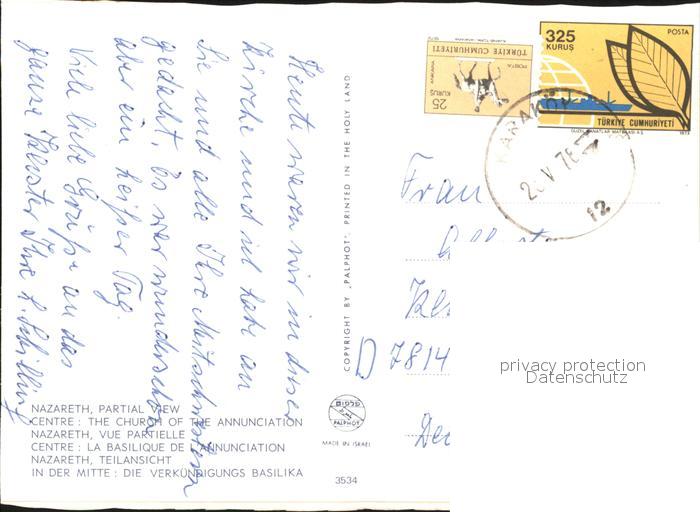 Heute waren wir in dieser
Kirche und ich habe an
Sie und alle Ihre Mitschwestern
gedacht. Es war wunderschön
aber ein heißer Tag.
Viele liebe Grüße an das
ganze Kloster Ihre h. Schilling
NAZARETH, PARTIAL VIEW
CENTRE : THE CHURCH OF THE ANNUNCIATION
NAZARETH, VUE PARTIELLE
CENTRE : LA BASILIQUE DE L'ANNUNCIATION
NAZARETH, TEILANSICHT
IN DER MITTE : DIE VERKÜNDIGUNGS BASILIKA
COPYRIGHT BY „PALPHOT", PRINTED IN THE HOLY LAND
פלפוט
PALPHOT
MADE IN ISRAEL
3534
TÜRKİYE CUMHURİYETİ
POSTA
25
KURUŞ
325
KURUŞ
POSTA
TÜRKİYE CUMHURİYETİ
1973
KARAKÖY
V 76
12
Frau
D 7814
privacy protection
Datenschutz